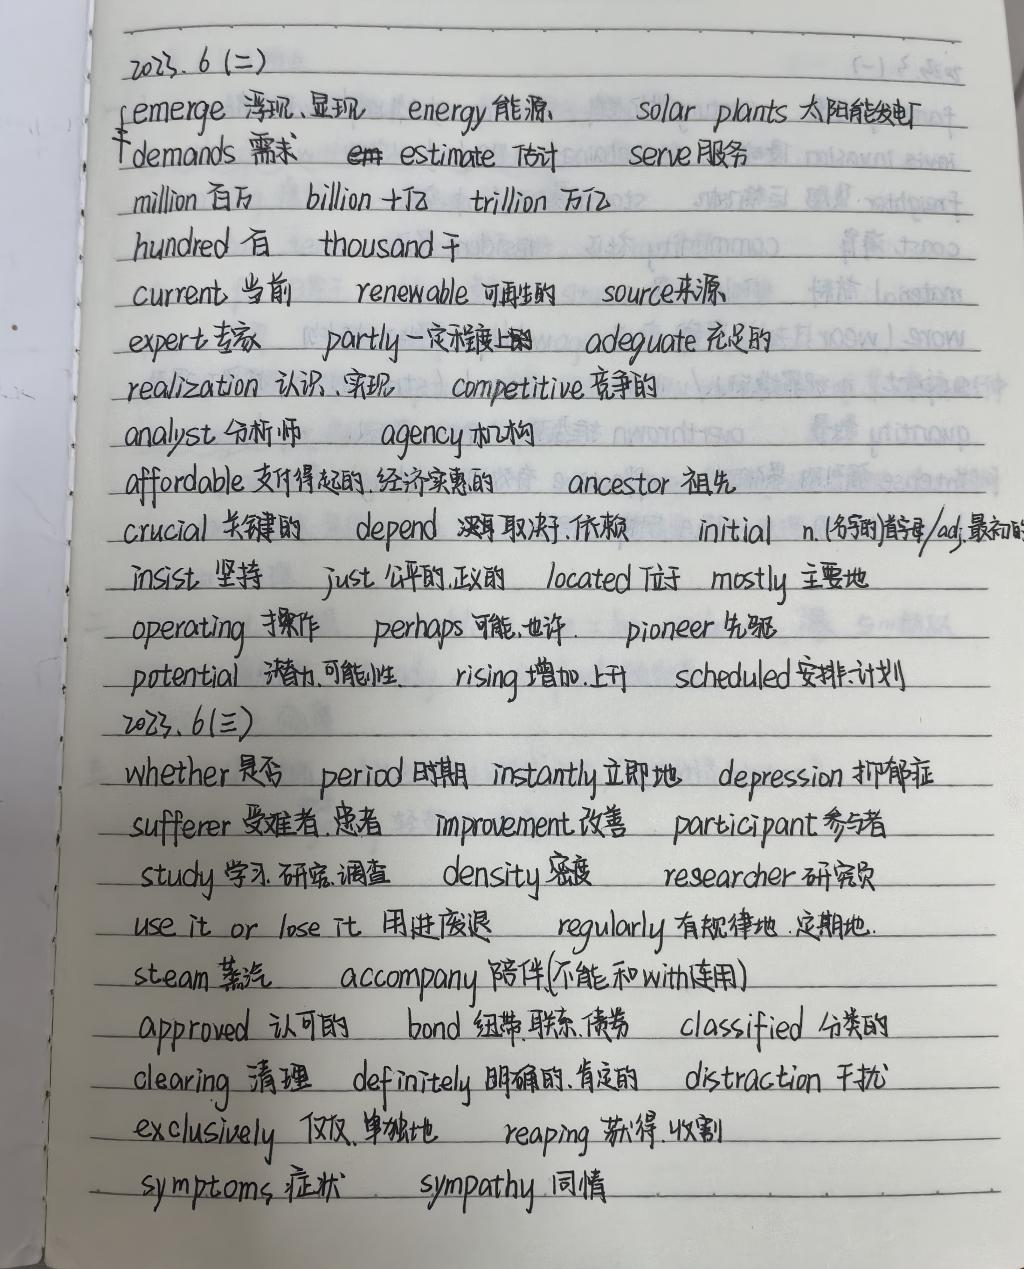 2023.6(二)
emerge 浮现、显现 energy 能源 solar plants 太阳能发电厂
demands 需求 estimate 估计 serve 服务
million 百万 billion 十亿 trillion 万亿
hundred 百 thousand 千
current 当前 renewable 可再生的 source 来源
expert 专家 partly 一定程度上 adequate 充足的
realization 认识、实现 competitive 竞争的
analyst 分析师 agency 机构
affordable 支付得起的、经济实惠的 ancestor 祖先
crucial 关键的 depend 取决于、依赖 initial n.(名字的)首字母/adj.最初的
insist 坚持 just 公平的、正义的 located 位于 mostly 主要地
operating 操作 perhaps 可能、也许 pioneer 先驱
potential 潜力、可能性 rising 增加、上升 scheduled 安排、计划
2023.6(三)
whether 是否 period 时期 instantly 立即地 depression 抑郁症
sufferer 受难者、患者 improvement 改善 participant 参与者
study 学习、研究、调查 density 密度 researcher 研究员
use it or lose it 用进废退 regularly 有规律地、定期地.
steam 蒸汽 accompany 陪伴(不能和with连用)
approved 认可的 bond 纽带、联系、债券 classified 分类的
clearing 清理 definitely 明确的、肯定的 distraction 干扰
exclusively 仅仅、单独地 reaping 获得、收割
symptoms 症状 sympathy 同情